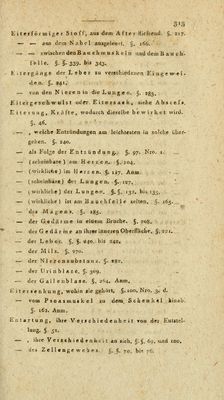 313
Eiterförmiger Stoff, aus dem After fliessend. §. 217.
— — aus dem Nabel ausgeleert. §. 166.
— — zwischen den Bauchmuskeln und dem Bauchfelle. §. §. 339. bis 343.
Eitergänge der Leber zu verschiedenen Eingeweiden. §. 241.
— von den Nieren in die Lungen. §. 285.
Eitergeschwulst oder Eitersack, siehe Abscess.
Eiterung, Kräfte, wodurch dieselbe bewirket wird. §. 46.
— , welche Entzündungen am leichtesten in solche übergehen. §. 240.
— als Folge der Entzündung. §. 97. Nro. 1.
— (scheinbare) am Herzen. §. 204.
— (wirkliche) im Herzen. §. 127. Anm.
— (scheinbare) der Lungen. §. 127.
— (wirkliche) der Lungen. §. §. 131. bis 133.
— (wirkliche) ist am Bauchfelle selten. §. 165.
— des Magens. §. 185.
— der Gedärme in einem Bruche. §. 208.
— der Gedärme an ihrer inneren Oberfläche. §. 221.
— der Leber. §. §. 240. bis 242.
— der Milz. §. 270.
— der Nierensubstanz. §. 282.
— der Urinblase. §. 310.
— der Gallenblase. §. 254.
Eitersenkung, wohin sie gehört. §. 100. Nro. 3. d.
— vom Psoasmuskel zu dem Schenkel hinab. §. 162. Anm.
Entartung, ihre Verschiedenheit von der Entstellung. §. 51.
— , ihre Verschiedenheit an sich. §. §. 69. und 100.
— des Zellengewebes. §. §. 70. bis 76.